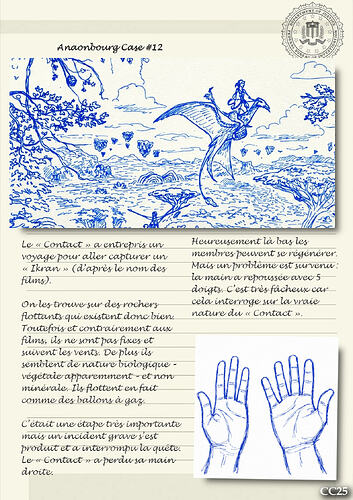 Anaonbourg Case #12
Le « Contact » a entrepris un
voyage pour aller capturer un
« Ikran » (d'après le nom des
films).
On les trouve sur des rochers
flottants qui existent donc bien.
Toutefois et contrairement aux
films, ils ne sont pas fixes et
suivent les vents. De plus ils
semblent de nature biologique -
végétale apparemment - et non
minérale. Ils flottent en fait
comme des ballons à gaz.
C'était une étape très importante
mais un incident grave s'est
produit et a interrompu la quête.
Le « Contact » a perdu sa main
droite.
Heureusement là bas les
membres peuvent se régénérer.
Mais un problème est survenu :
la main a repoussée avec 5
doigts. C'est très fâcheux car
cela interroge sur la vraie
nature du « Contact ».
CC25